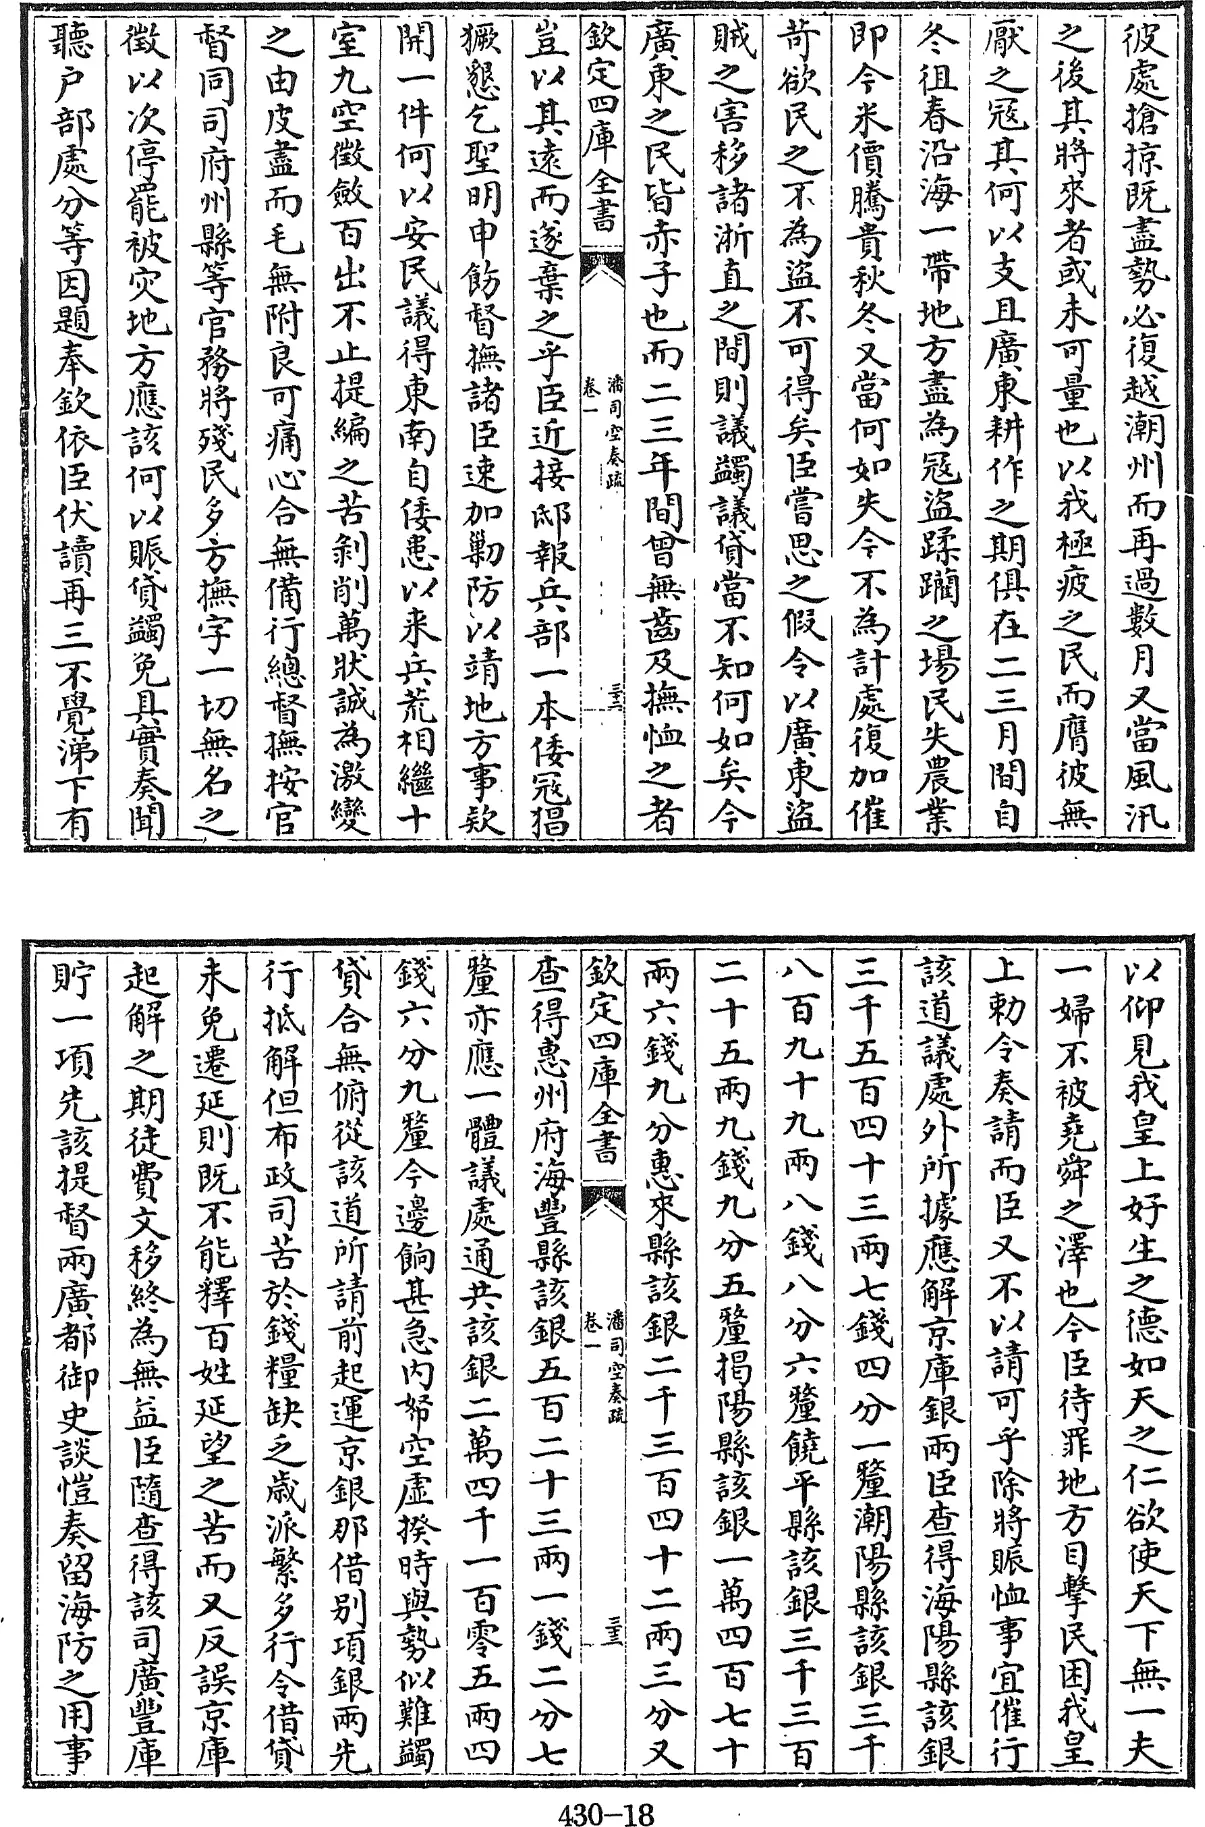 彼處搶掠既盡勢必復越潮州而再過數月又當風汛
之後其將來者或未可量也以我極疲之民而膺彼無
厭之冦其何以支且廣東耕作之期俱在二三月間自
冬徂春沿海一帶地方盡為冦盜蹂躪之場民失農業
即今米價騰貴秋冬又當何如失今不為計處復加催
苛欲民之不為盜不可得矣臣嘗思之假令以廣東盜
賊之害移諸浙直之間則議蠲議貸當不知何如矣今
廣東之民皆赤子也而二三年間曾無齒及撫恤之者
欽定四庫全書
潘司空奏疏
卷一
三十二
豈以其遠而遂棄之乎臣近接邸報兵部一本倭冦猖
獗懇乞聖明申飭督撫諸臣速加勦防以靖地方事欵
開一件何以安民議得東南自倭患以来兵荒相繼十
室九空徵斂百出不止提編之苦剝削萬狀誠為激變
之由皮盡而毛無附良可痛心合無備行總督撫按官
督同司府州縣等官務將殘民多方撫字一切無名之
徵以次停罷被灾地方應該何以賑貸蠲免具實奏聞
聽户部處分等因題奉欽依臣伏讀再三不覺涕下有
以仰見我皇上好生之德如天之仁欲使天下無一夫
一婦不被堯舜之澤也今臣待罪地方目擊民困我皇
上勅令奏請而臣又不以請可乎除將賑恤事宜催行
該道議處外所據應解京庫銀兩臣查得海陽縣該銀
三千五百四十三兩七錢四分一釐潮陽縣該銀三千
八百九十九兩八錢八分六釐饒平縣該銀三千三百
二十五兩九錢九分五釐揭陽縣該銀一萬四百七十
兩六錢九分惠來縣該銀二千三百四十二兩三分又
欽定四庫全書
潘司空奏疏
卷一
三十三
查得惠州府海豐縣該銀五百二十三兩一錢二分七
釐亦應一體議處通共該銀二萬四千一百零五兩四
錢六分九釐今邊餉甚急内帑空虛揆時與勢似難蠲
貸合無俯從該道所請前起運京銀那借别項銀兩先
行抵解但布政司苦於錢糧缺乏歳派繁多行令借貸
未免遷延則既不能釋百姓延望之苦而又反誤京庫
起解之期徒費文移終為無益臣隨查得該司廣豐庫
貯一項先該提督兩廣都御史談愷奏留海防之用事
430-18